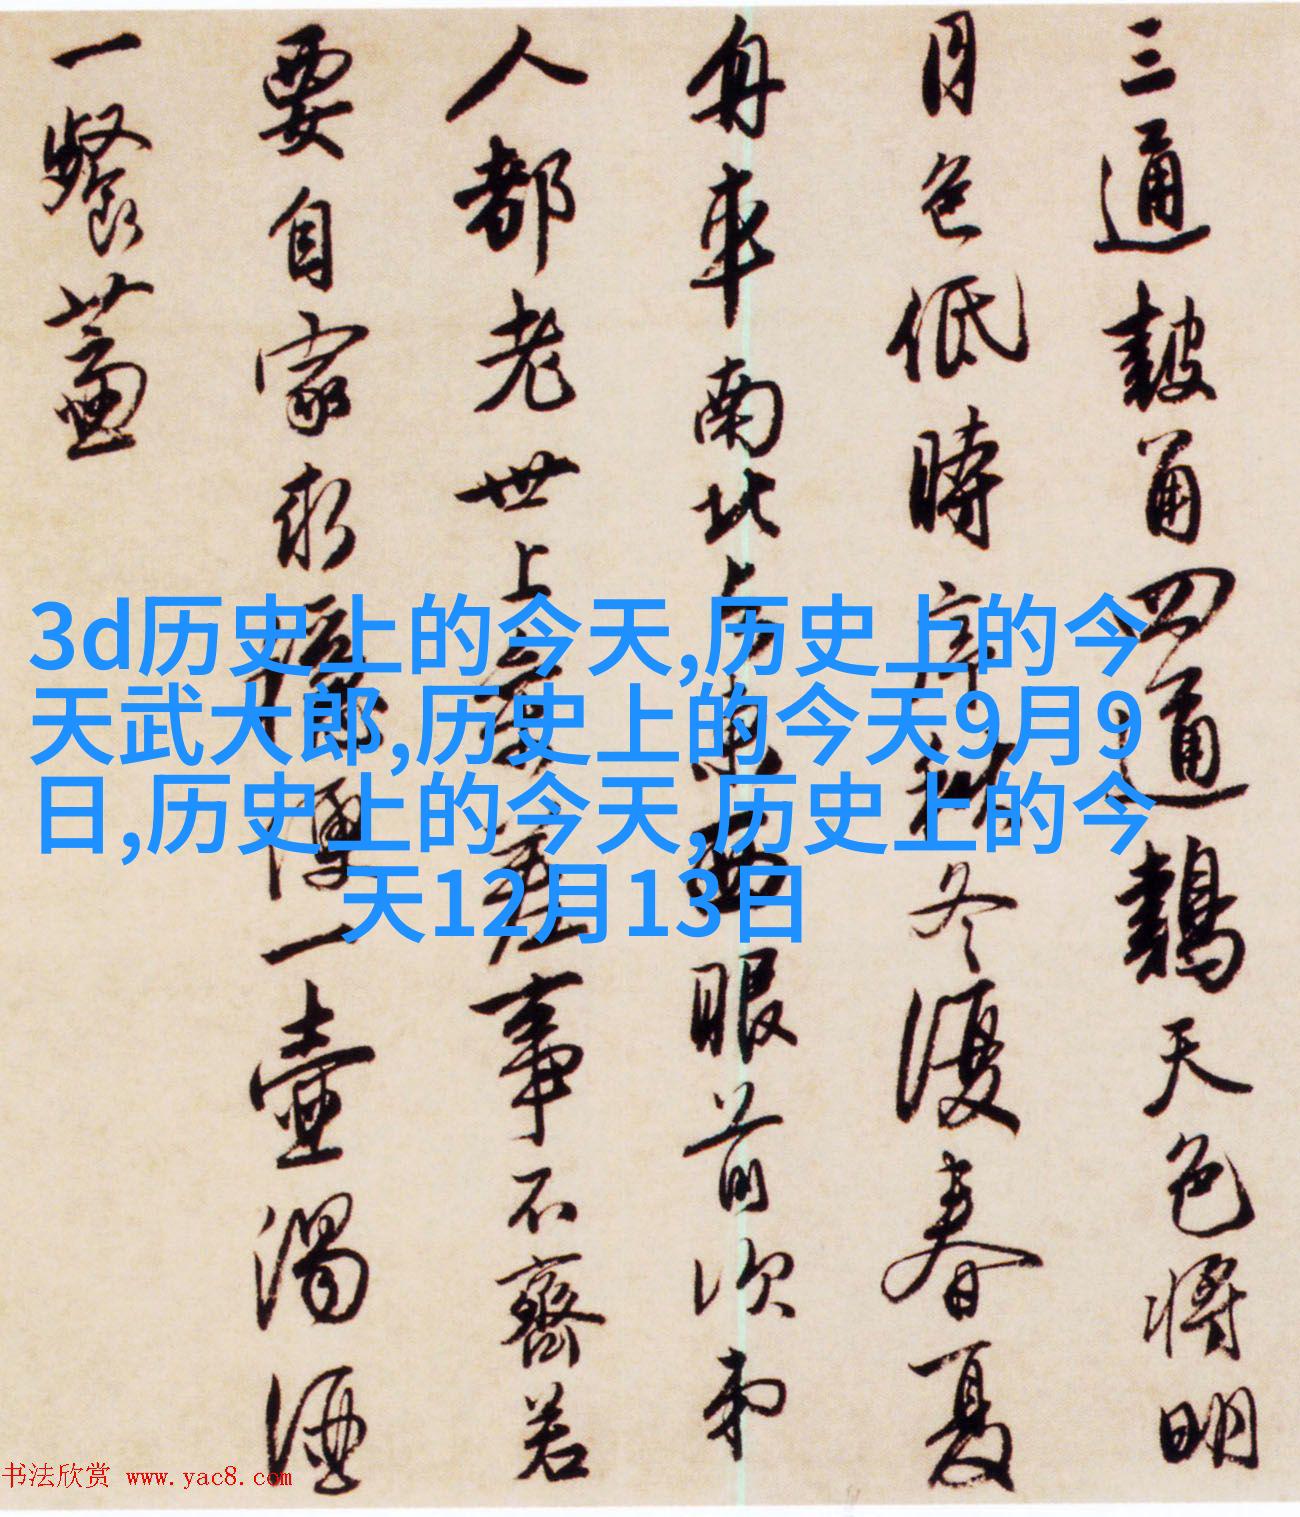 三通鼓角四通鷄天色将明
月色低時序秋冬復春夏
舟車南北与東西眼前次第
人都老世上
差事不齊若
要自家求
一壺濁酒
一餐
3d历史上的今天,历史上的今
天武大郎,历史上的今天9月9
日,历史上的今天,历史上的今
天12月13日
书法欣赏 www.yac8.com